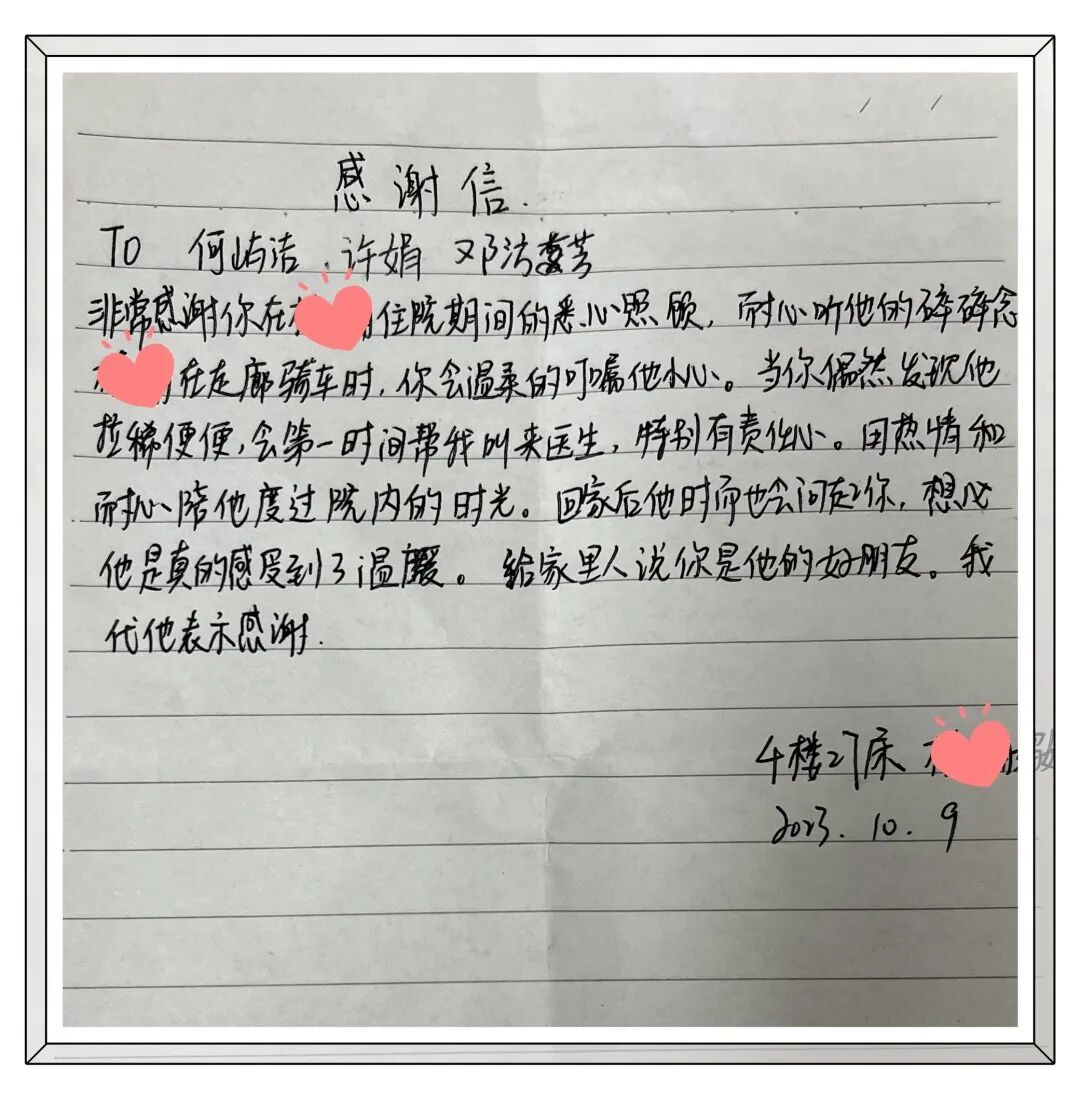 感谢信.
TO 何屿洁、许娟 邓洁
非常感谢你在 住院期间的悉心照顾，耐心听他的碎碎念
在走廊骑车时，你会温柔的叮嘱他小心。当你偶然发现他
拉稀便便，会第一时间帮我叫来医生，特别有责任心。用热情和
耐心陪他度过院内的时光。回家后他时而也会问起你，想必
他是真的感受到了温暖。给家里人说你是他的好朋友。我
代他表示感谢.
4楼27床
2023.10.9